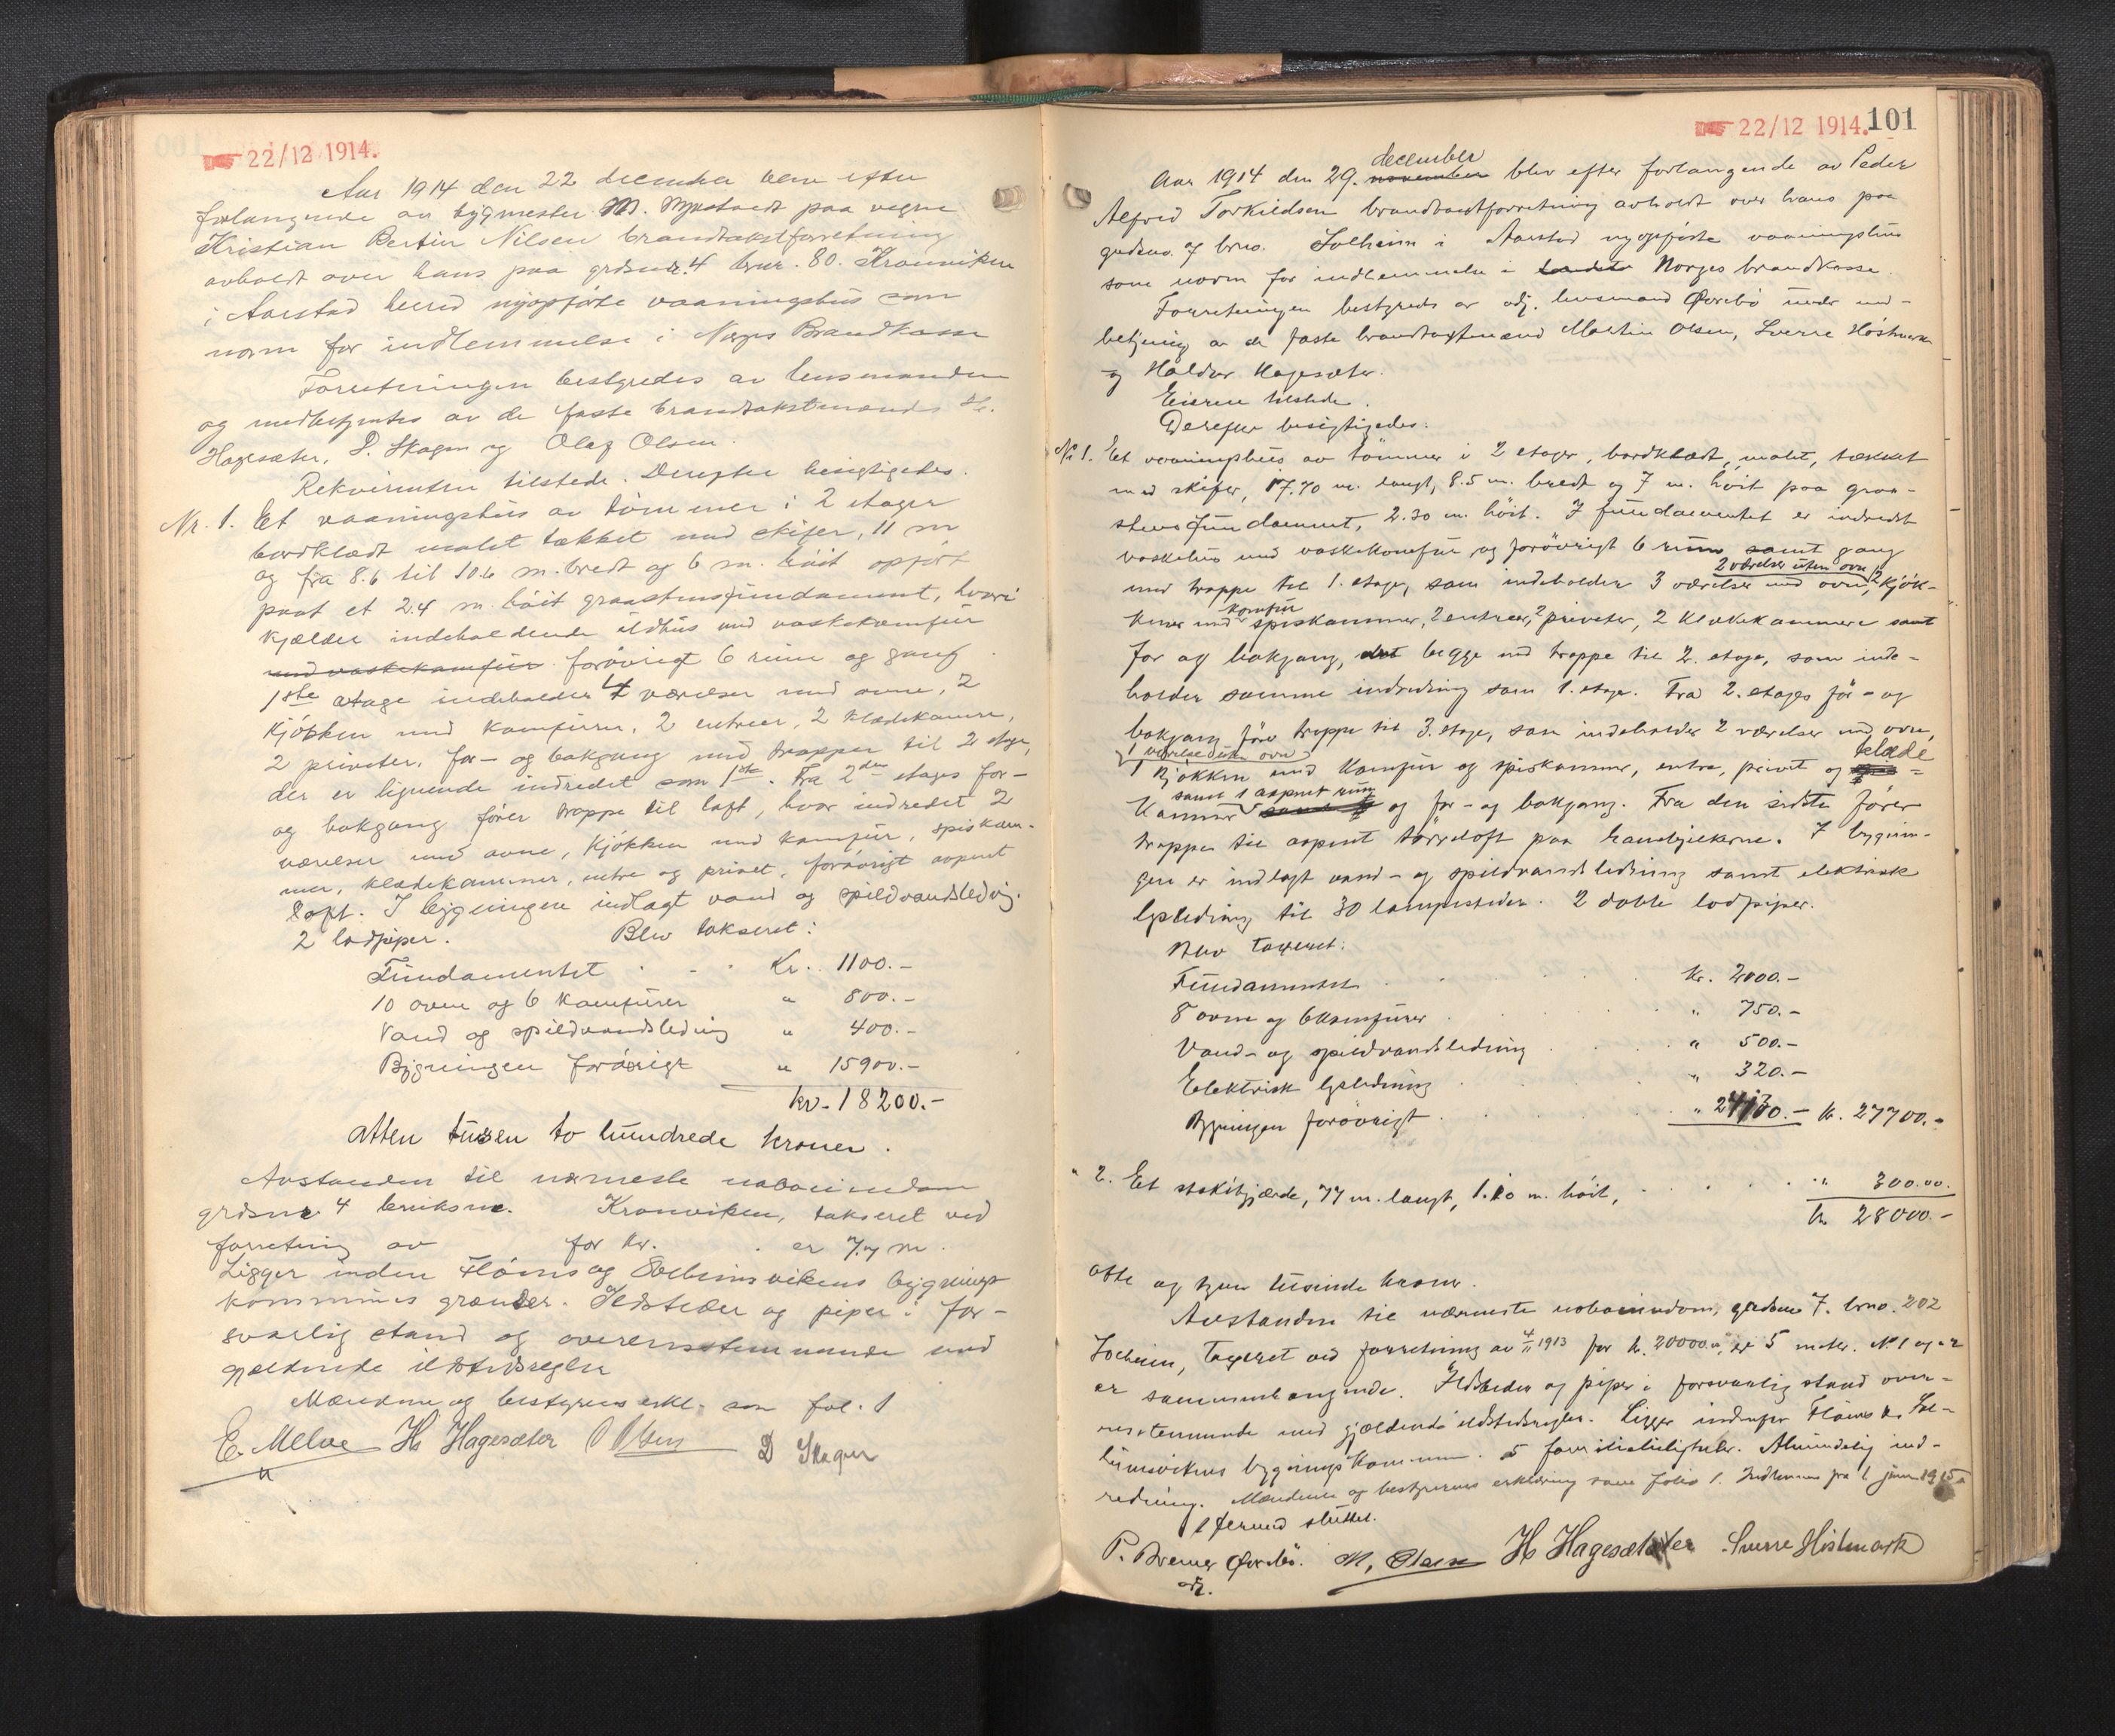 22/12 1914.
Aar 1914 den 22 december blev efter
forlangende av bygmester M. paa vegne
Kristian Bertin Nilsen brandtakstforretning
avholdt over hans paa grdsnr. 4 brnr. 80. Kronviken
i Aarstad herred nyopførte vaaningshus som
norm for indlemmelse i Norges Brandkasse
Forretningen bestyredes av lensmanden
og medbetjentes av de faste brandtakstmænd H.
Hagesæter, D. Skagen og Olaf Olsen.
Rekvirenten tilstede. Derefter besigtigedes.
Nr. 1. Et vaaningshus av tømmer i 2 etager
bordklædt malet tækket med skifer, 11 m
og fra 8.6 til 10.6 m. bredt og 6 m. høit opført
paat et 2.4 m. høit graastensfundament, hvori
kjælder indeholdende ildhus med vaskekomfur
med vaskekomfur forøvrigt 6 rum og gang.
1ste etage indeholder 4 værelser med ovne, 2
kjøkken med komfurer, 2 entreer, 2 klædekamre,
2 priveter, for- og bakgang med trapper til 2 etage,
der er lignende indredet som 1ste. Fra 2den etages for-
og bakgang fører trappe til loft, hvor indredet 2
værelser med ovne, kjøkken med komfur, spiskam-
mer, klædekammer, entre og privet, forøvrigt aapent
loft. I bygningen indlagt vand og spildvandsledng.
2 lodpiper. Blev takseret:
Fundamentet . . . Kr. 1100.-
10 ovne og 6 komfurer " 800.-
Vand og spildvandsledning " 400.-
Bygningen forøvrigt " 15900.-
kr. 18200.-
atten tusen to hundrede kroner.
Avstanden til nærmeste naboeiendom
grdsnr. 4 bruksnr. Kronviken, takseret ved
forretning av for kr. . er 7.7 m.
Ligger inden Fløens og Solheimsvikens bygnings
kommunes grændser. Ildsteder og piper i for-
svarlig stand og overensstemmende med
gjældende ildstedsregler
Mændene og bestyrers erkl. som fol. 1
E. Melve H Hagesæter O Olsen D Skagen
22/12 1914. 101
december
Aar 1914 den 29. november blev efter forlangende av Peder
Alfred Torkildsen brandtaxtforretning avholdt over hans paa
grdsno. 7 brno. Solheim i Aarstad nyopførte vaaningshus
som norm for indlemmelse i landets Norges brandkasse.
Forretningen bestyreds av adj. lensmand Øvrebø under med-
betjening av de faste brandtaxtmænd Martin Olsen, Sverre Høstmark
og Haldor Hagesæter.
Eieren tilstede.
Derefter besigtigedes:
No 1. Et vaaningshus av tømmer i 2 etager, bordklædt, malet, tækket
med skifer, 17.70 m. langt, 8.5 m. bredt og 7 m. høit paa graa-
stensfundament, 2.30 m. høit. I fundamentet er indredet
vaskehus med vaskekomfur og forøvrigt 6 rum samt gang
2 værelser uten ovn
med trappe til 1. etage, som indeholder 3 værelser med ovne, 2 kjøk-
komfur
kener med spiskammer, 2 entreer, 2 priveter, 2 klædekammere samt
for og bakgang, det begge med trappe til 2. etage, som inde-
holder samme indredning som 1. etage. Fra 2. etages for- og
bakgang fører trappe til 3. etage, som indeholder 2 værelser med ovn,
1 værelse uten ovn
1 kjøkken med komfur og spiskammer, entre, privet og klæde
samt 1 aapent rum
kammer og for- og bakgang. Fra den sidste fører
trappe til aapent tørreloft paa hanebjelkerne. I bygnin-
gen er indlagt vand- og spildvandsledning samt elektrisk
lysledning til 30 lampesteder. 2 doble lodpiper.
Blev taxeret:
Fundamentet . . . Kr. 2000.-
8 ovne og 6 komfurer . . . " 750.-
Vand- og spildvandsledning . . . " 500.-
Elektrisk lysledning . . . " 320.-
Bygningen forøvrigt . . . " 24130.- kr. 27700.-
" 2. Et stakitgjærde, 77 m. langt, 1.10 m. høit, . . . " 300.00.
kr 28000.-
otte og tyve tusinde kroner.
Avstanden til nærmeste naboeiendom, grdsno 7. brno. 202
Solheim, taxeret ved forretning av 4/11 1913 for kr. 20000.00, er 5 meter. No 1 og 2
er sammenhængende. Ildsteder og piper i forsvarlig stand over-
ensstemmende med gjældende ildstedsregler. Ligger indenfor Fløens & Sol-
heimsvikens bygningskommune. 5 familieleiligheter. Almindelig ind-
redning. Mændenes og bestyrerens erklæring som folio 1. Indlemmes fra 1 januar 1915
sluttet.
P. Bremer Øvrebø. M. Olsen H Hagesæter Sverre Høstmark
adj.